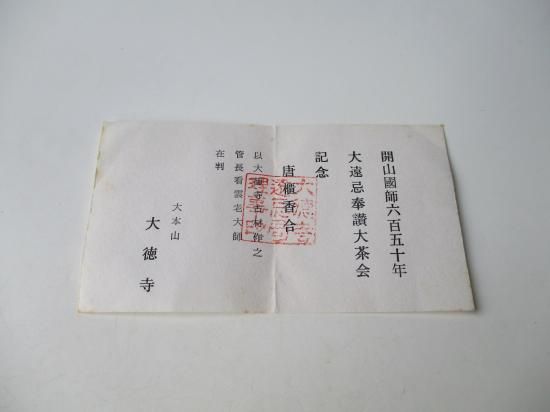 開山國師六百五十年
大遠忌奉讃大茶会
記念
唐櫃香合
以大徳寺古材作之
管長看雲老大師
在判
大本山
大徳寺